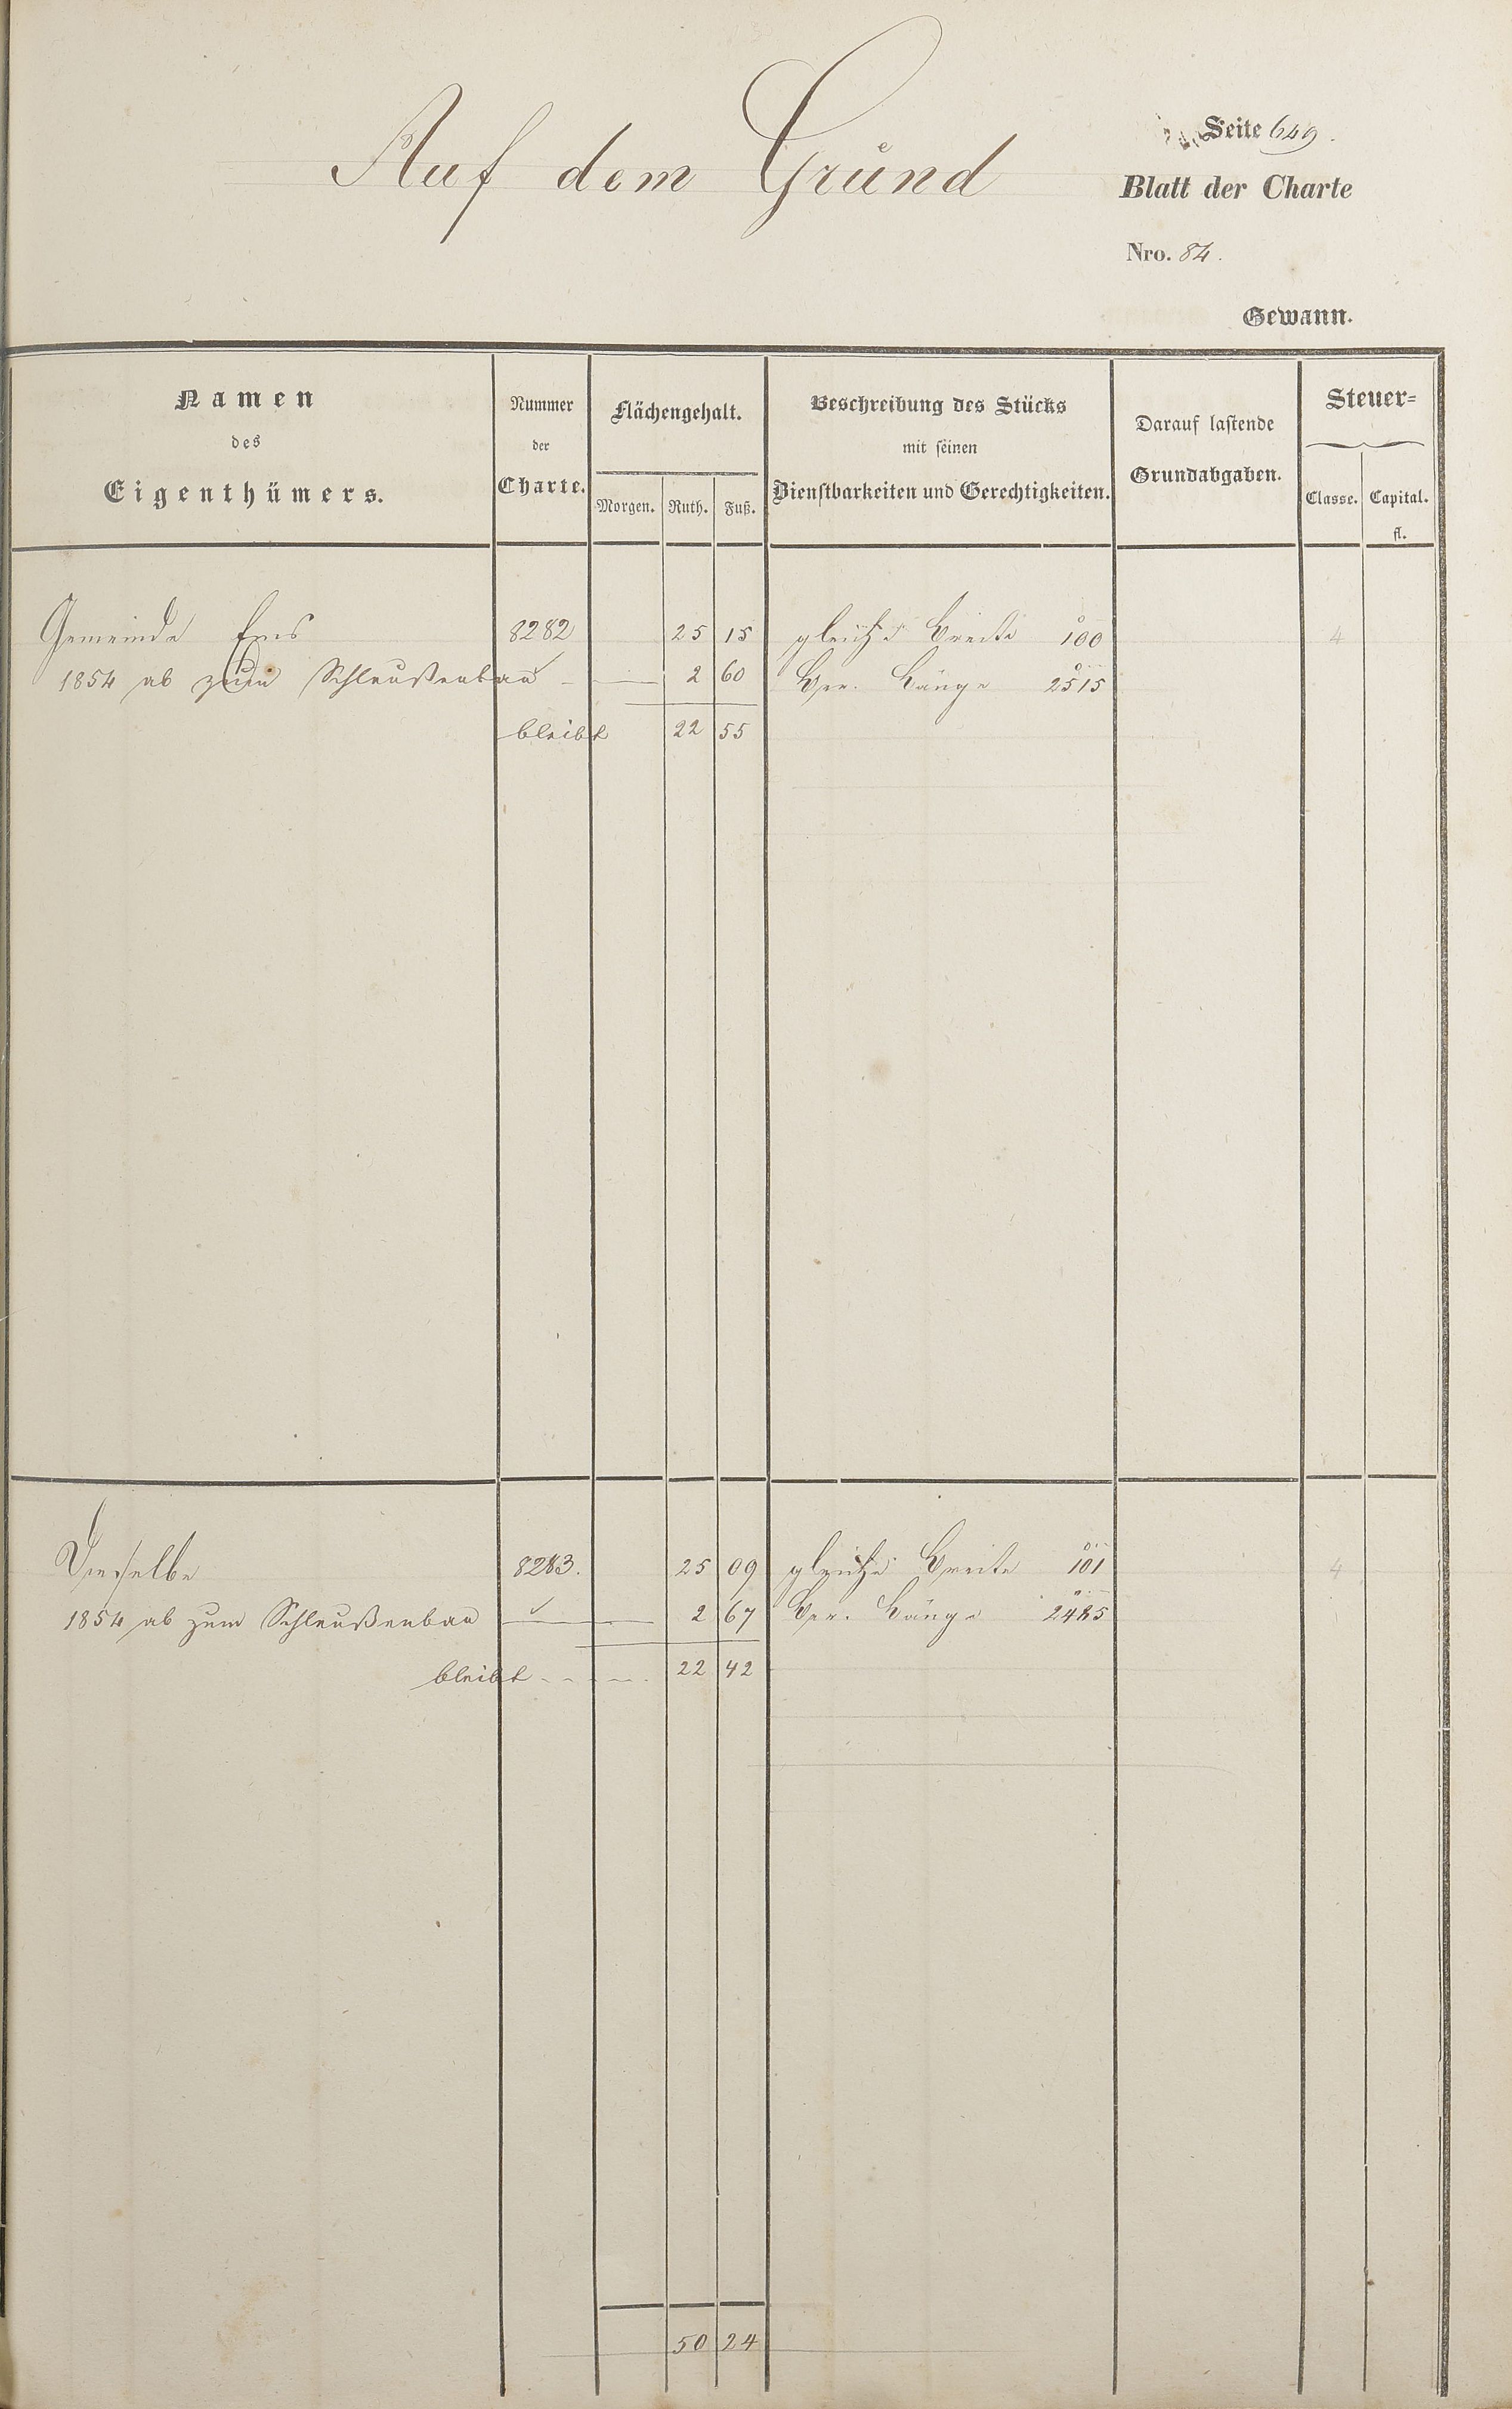 Auf dem Grund
Seite 649.
Blatt der Charte
Nro. 84.
Gewann.
Namen
des
Eigenthümers.
Nummer
der
Charte.
Flächengehalt.
Morgen. Ruth. Fuß.
Beschreibung des Stücks
mit seinen
Dienstbarkeiten und Gerechtigkeiten.
Darauf lastende
Grundabgaben.
Steuer-
Classe. Capital.
fl.
Gemeinde Ems 8282 25 15 gleiche Breite 100 4
1854 ab zum Schleußenbau 2 60 Länge 2515
bleibt 22 55
Dieselbe 8283. 25 09 gleiche Breite 101 4
1854 ab zum Schleußenbau 2 67 Länge 2485
bleibt 22 42
50 24